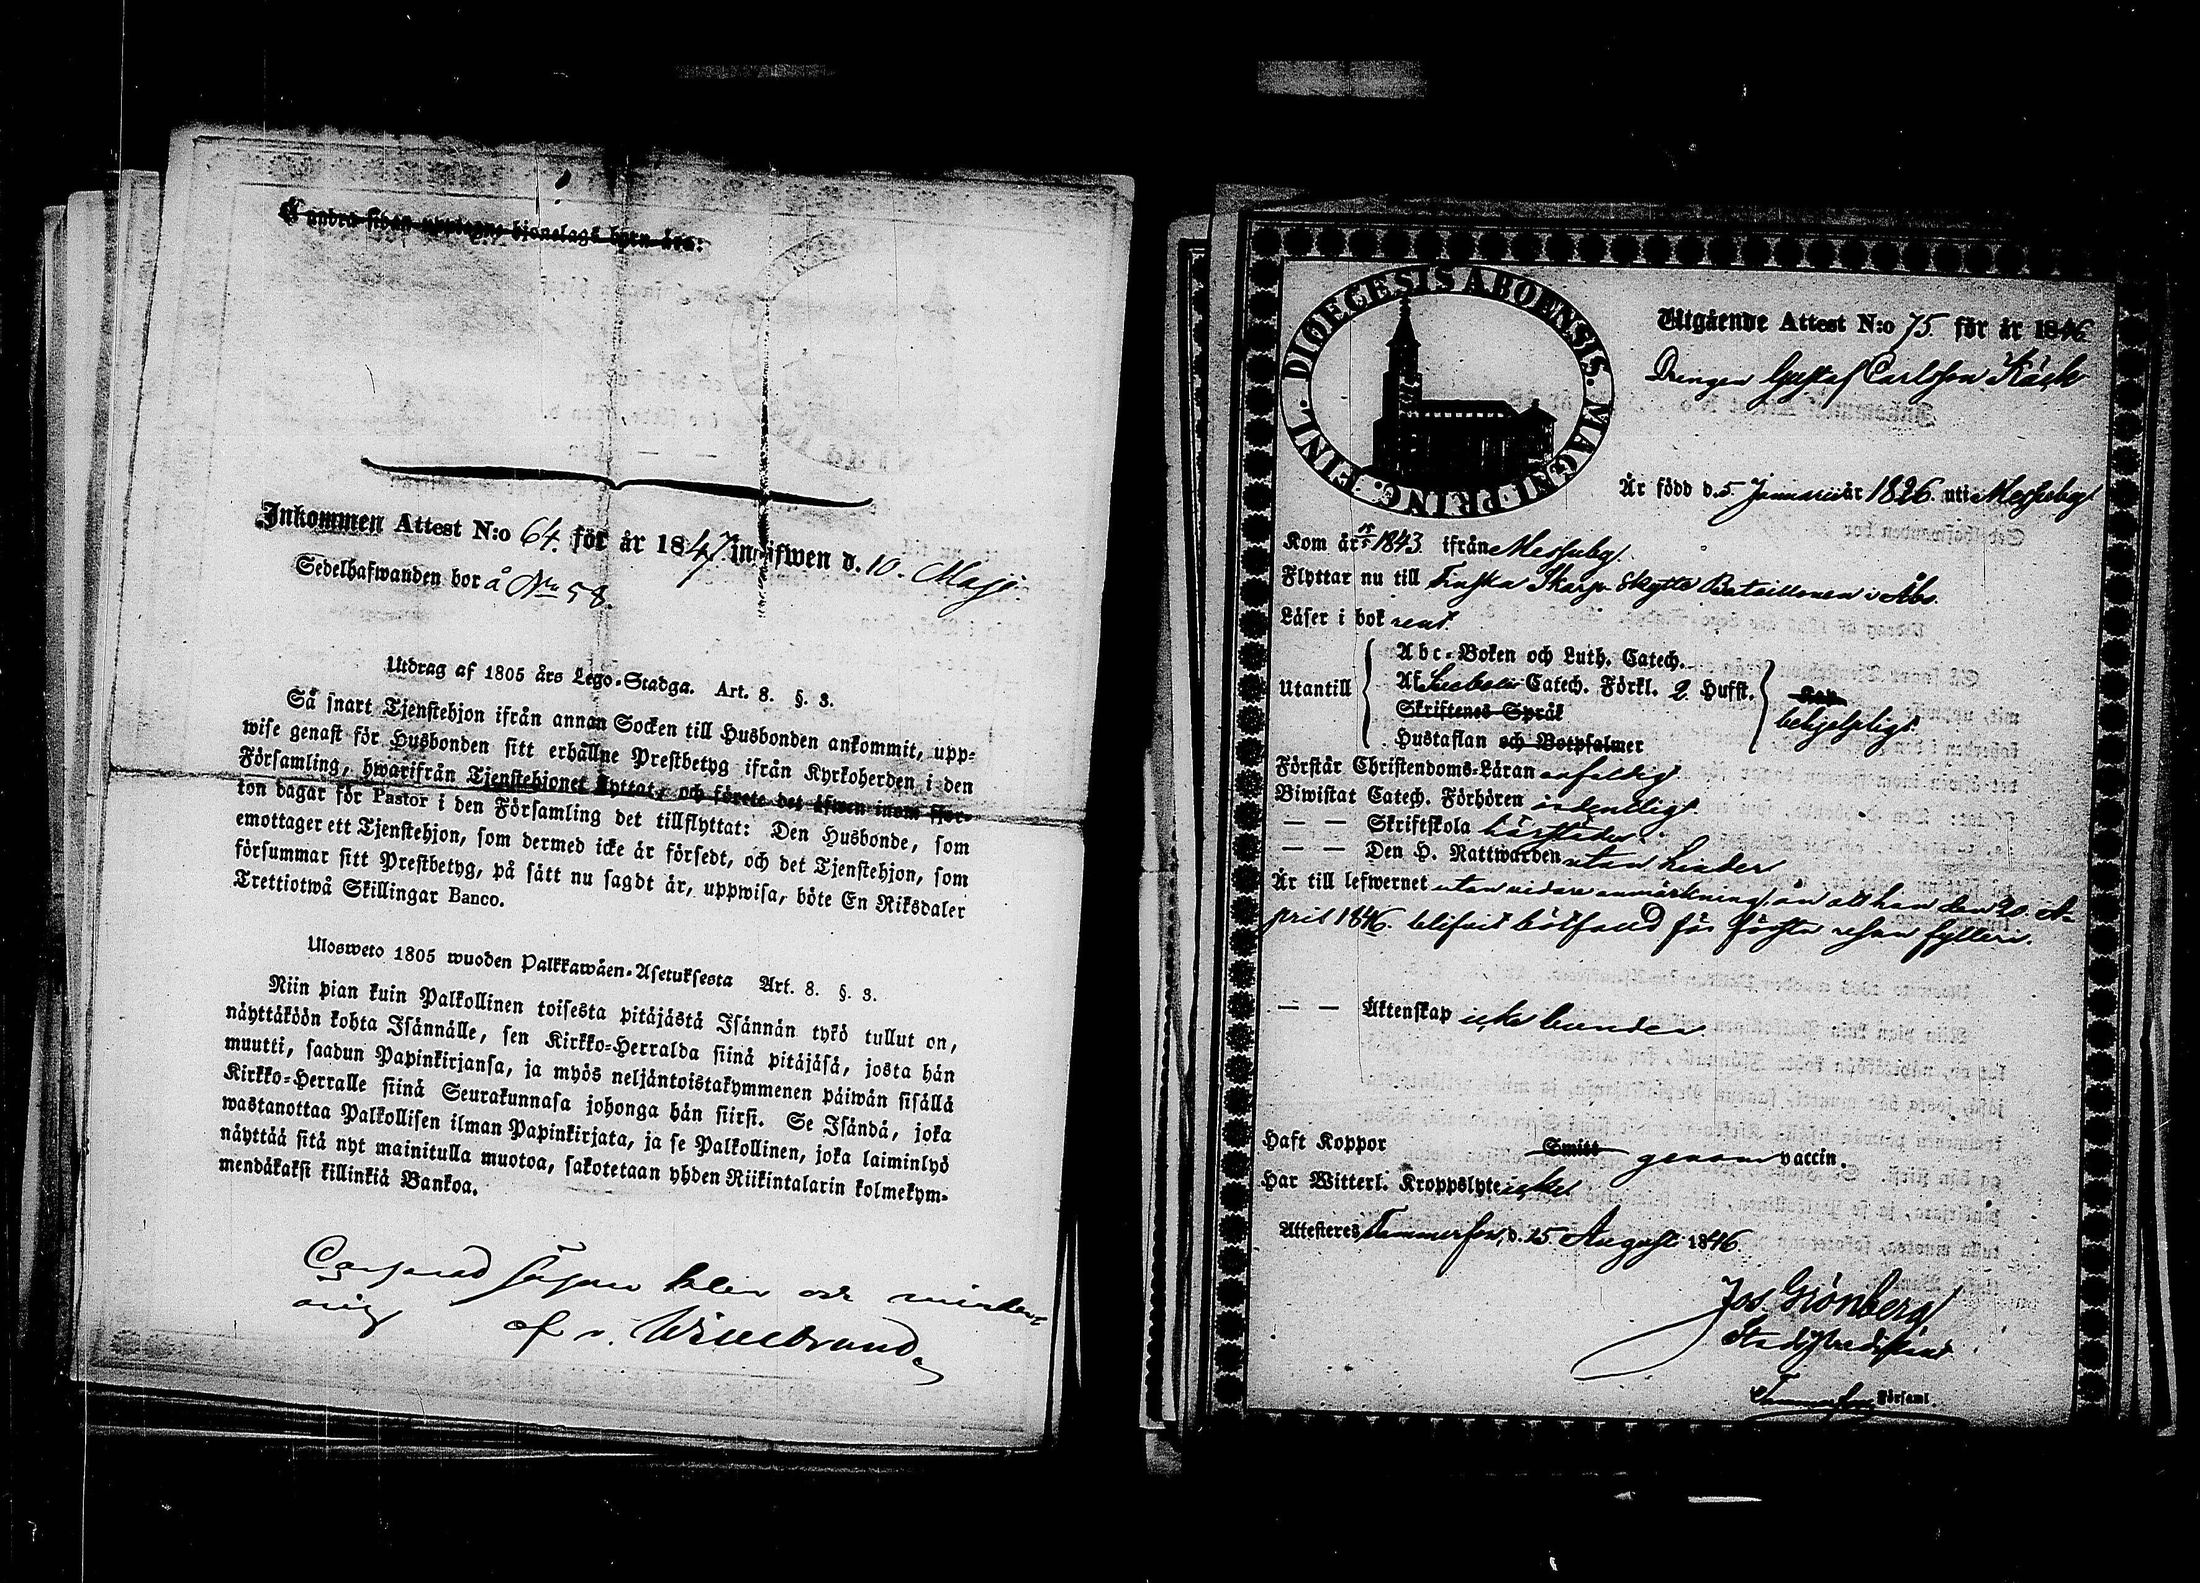 Å andra sidan upptagne hjonelags barn äro:
Inkommen Attest N:o 64. för år 1847. inskrifwen d. 10. Maji.
Sedelhafwanden bor å No 58.
Utdrag af 1805 års Lego-Stadga. Art. 8. §. 3.
Så snart Tjenstehjon ifrån annan Socken till Husbonden ankommit, upp-
wise genast för Husbonden sitt erhållne Prestbetyg ifrån Kyrkoherden i den
Församling, hwarifrån Tjenstehjonet flyttat, och förete det äfwen inom fjor-
ton dagar för Pastor i den Församling det tillflyttat: Den Husbonde, som
emottager ett Tjenstehjon, som dermed icke är försedt, och det Tjenstehjon, som
försummar sitt Prestbetyg, på sätt nu sagdt är, uppwisa, böte En Riksdaler
Trettiotwå Skillingar Banco.
Ulosweto 1805 wuoden Palkkawäen-Asetuksesta Art. 8. §. 3.
Niin pian kuin Palkollinen toisesta pitäjästä Isännän tykö tullut on,
näyttäköön kohta Isännälle, sen Kirkko-Herralda siinä pitäjäsä, josta hän
muutti, saadun Papinkirjansa, ja myös neljäntoistakymmenen päiwän sisällä
Kirkko-Herralle siinä Seurakunnasa johonga hän siirsi. Se Isändä, joka
wastanottaa Palkollisen ilman Papinkirjata, ja se Palkollinen, joka laiminlyö
näyttää sitä nyt mainitulla muotoa, sakotetaan yhden Riikintalarin kolmekym-
mendäkaksi killinkiä Bankoa.
af v. Willebrand
DIOECESIS ABOENSIS. MAGNI PRINC. FINL.
Utgående Attest N:o 75 för år 1846
Drengen Gustaf Carlsson Käck
Är född d. 5 Januarii år 1826 uti Messuby
Kom år 1843 ifrån Messuby.
Flyttar nu till Finska Skarp-Skytte Bataillonen i Åbo.
Läser i bok rent
Abc-Boken och Luth. Catech.
Utantill Af Svebelii Catech. Förkl. 2. Hufst.
Skriftenes Språk behjelpligt.
Hustaflan och Botpsalmer
Förstår Christendoms-Läran enfaldigt
Biwistat Catech. Förhören ordentligt.
— — Skriftskola härstädes.
— — Den H. Nattwarden utan hinder
Är till lefwernet utan vidare anmärkning, än att han den 20. A-
pril 1846. blifvit bötfälld för första resan fylleri.
— — Äktenskap icke bunden.
Haft Koppor Smitt genom vaccin.
Har Witterl. Kroppslyte icke.
Attesteres Tammerfors, d. 15 Augusti 1846.
Jos. Grönberg
Stadspredikant
Tammerfors Församl.